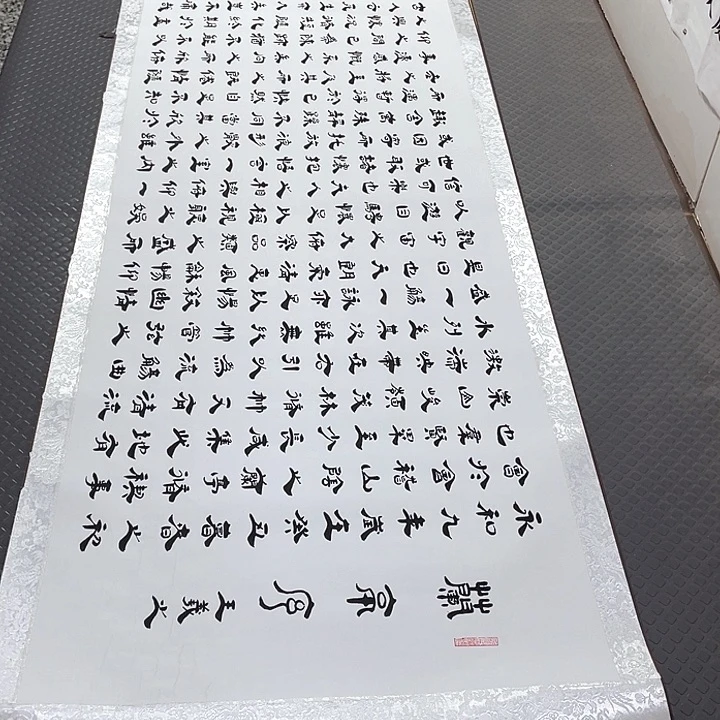 蘭亭序 王羲之
永和九年歲在癸丑暮春之初
會於會稽山陰之蘭亭脩禊事
也羣賢畢至少長咸集此地有
崇山峻領茂林脩竹又有清流
激湍映帶左右引以為流觴曲
水列坐其次雖無絲竹管弦之
盛一觴一詠亦足以暢敘幽情
是日也天朗氣清惠風和暢仰
觀宇宙之大俯察品類之盛所
以遊目騁懷足以極視聽之娛
信可樂也夫人之相與俯仰一
世或取諸懷抱悟言一室之內
或因寄所託放浪形骸之外雖
趣舍萬殊靜躁不同當其欣於
所遇暫得於己快然自足不知
老之將至及其所之既惓情隨
事遷感慨係之矣向之所欣俛
仰之間已為陳跡猶不能不以
之興懷况脩短隨化終期於盡